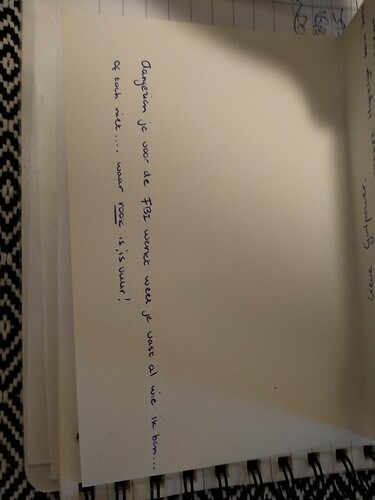 Aangezien je voor de FBI werkt weet je vast al wie ik ben...
of toch niet.... waar rook is, is vuur!